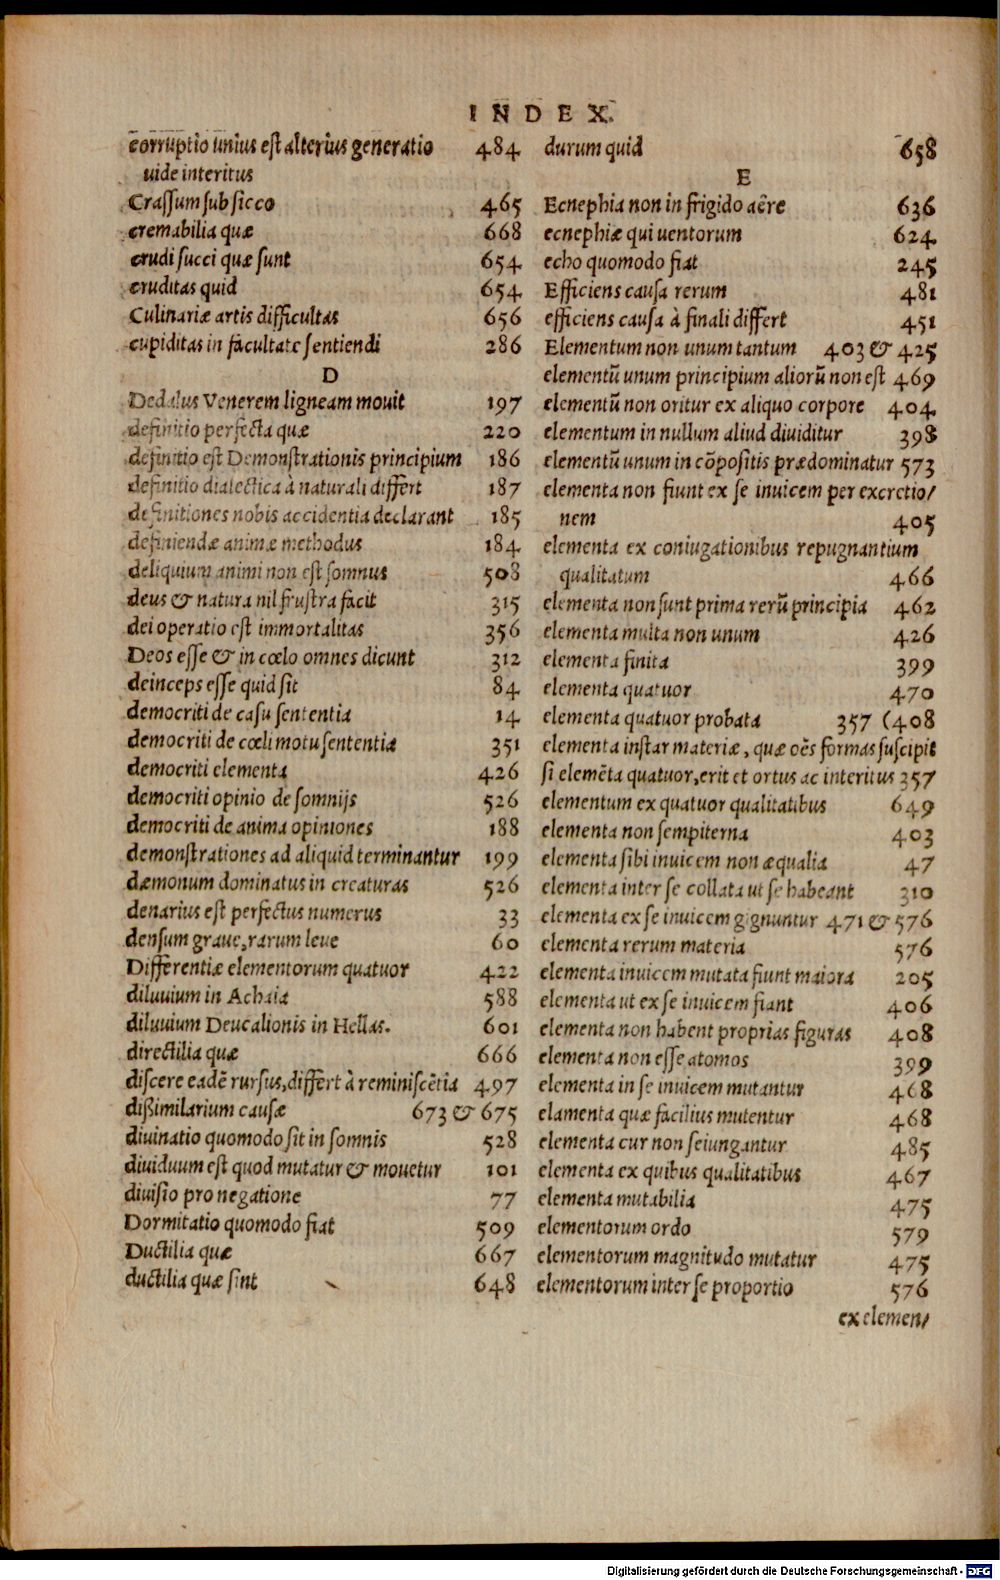 INDEX.
corruptio unius est alterius generatio 484
uide interitus
Crassum sub sicco 465
cremabilia quæ 668
crudi succi quæ sunt 654
cruditas quid 654
Culinariæ artis difficultas 656
cupiditas in facultate sentiendi 286
D
Dedalus Venerem ligneam mouit 197
definitio perfecta quæ 220
definitio est Demonstrationis principium 186
definitio dialectica à naturali differt 187
definitiones nobis accidentia declarant 185
definiendæ animæ methodus 184
deliquium animi non est somnus 508
deus & natura nil frustra facit 315
dei operatio est immortalitas 356
Deos esse & in cœlo omnes dicunt 312
deinceps esse quid sit 84
democriti de casu sententia 14
democriti de cœli motu sententia 351
democriti elementa 426
democriti opinio de somnijs 526
democriti de anima opiniones 188
demonstrationes ad aliquid terminantur 199
dæmonum dominatus in creaturas 526
denarius est perfectus numerus 33
densum graue, rarum leue 60
Differentiæ elementorum quatuor 422
diluuium in Achaia 588
diluuium Deucalionis in Hellas. 601
directilia quæ 666
discere eadē rursus, differt à reminiscētia 497
dißimilarium causæ 673 & 675
diuinatio quomodo sit in somnis 528
diuiduum est quod mutatur & mouetur 101
diuisio pro negatione 77
Dormitatio quomodo fiat 509
Ductilia quæ 667
ductilia quæ sint 648
durum quid 658
E
Ecnephia non in frigido aëre 636
ecnephiæ qui uentorum 624
echo quomodo fiat 245
Efficiens causa rerum 481
efficiens causa à finali differt 451
Elementum non unum tantum 403 & 425
elementū unum principium aliorū non est 469
elementū non oritur ex aliquo corpore 404
elementum in nullum aliud diuiditur 398
elementū unum in cōpositis prædominatur 573
elementa non fiunt ex se inuicem per excretio/
nem 405
elementa ex coniugationibus repugnantium
qualitatum 466
elementa non sunt prima rerū principia 462
elementa multa non unum 426
elementa finita 399
elementa quatuor 470
elementa quatuor probata 357 (408
elementa instar materiæ, quæ oēs formas suscipit
si elemēta quatuor, erit et ortus ac interitus 357
elementum ex quatuor qualitatibus 649
elementa non sempiterna 403
elementa sibi inuicem non æqualia 47
elementa inter se collata ut se habeant 310
elementa ex se inuicem gignuntur 471 & 576
elementa rerum materia 576
elementa inuicem mutata fiunt maiora 205
elementa ut ex se inuicem fiant 406
elementa non habent proprias figuras 408
elementa non esse atomos 399
elementa in se inuicem mutantur 468
elamenta quæ facilius mutentur 468
elementa cur non seiungantur 485
elementa ex quibus qualitatibus 467
elementa mutabilia 475
elementorum ordo 579
elementorum magnitudo mutatur 475
elementorum inter se proportio 576
ex elemen/
Digitalisierung gefördert durch die Deutsche Forschungsgemeinschaft - DFG